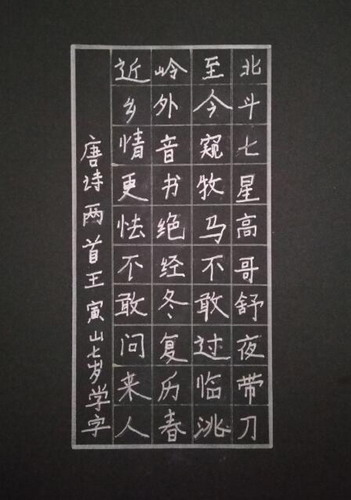 北斗七星高哥舒夜带刀
至今窥牧马不敢过临洮
岭外音书绝经冬复历春
近乡情更怯不敢问来人
唐诗两首王寅山七岁学字